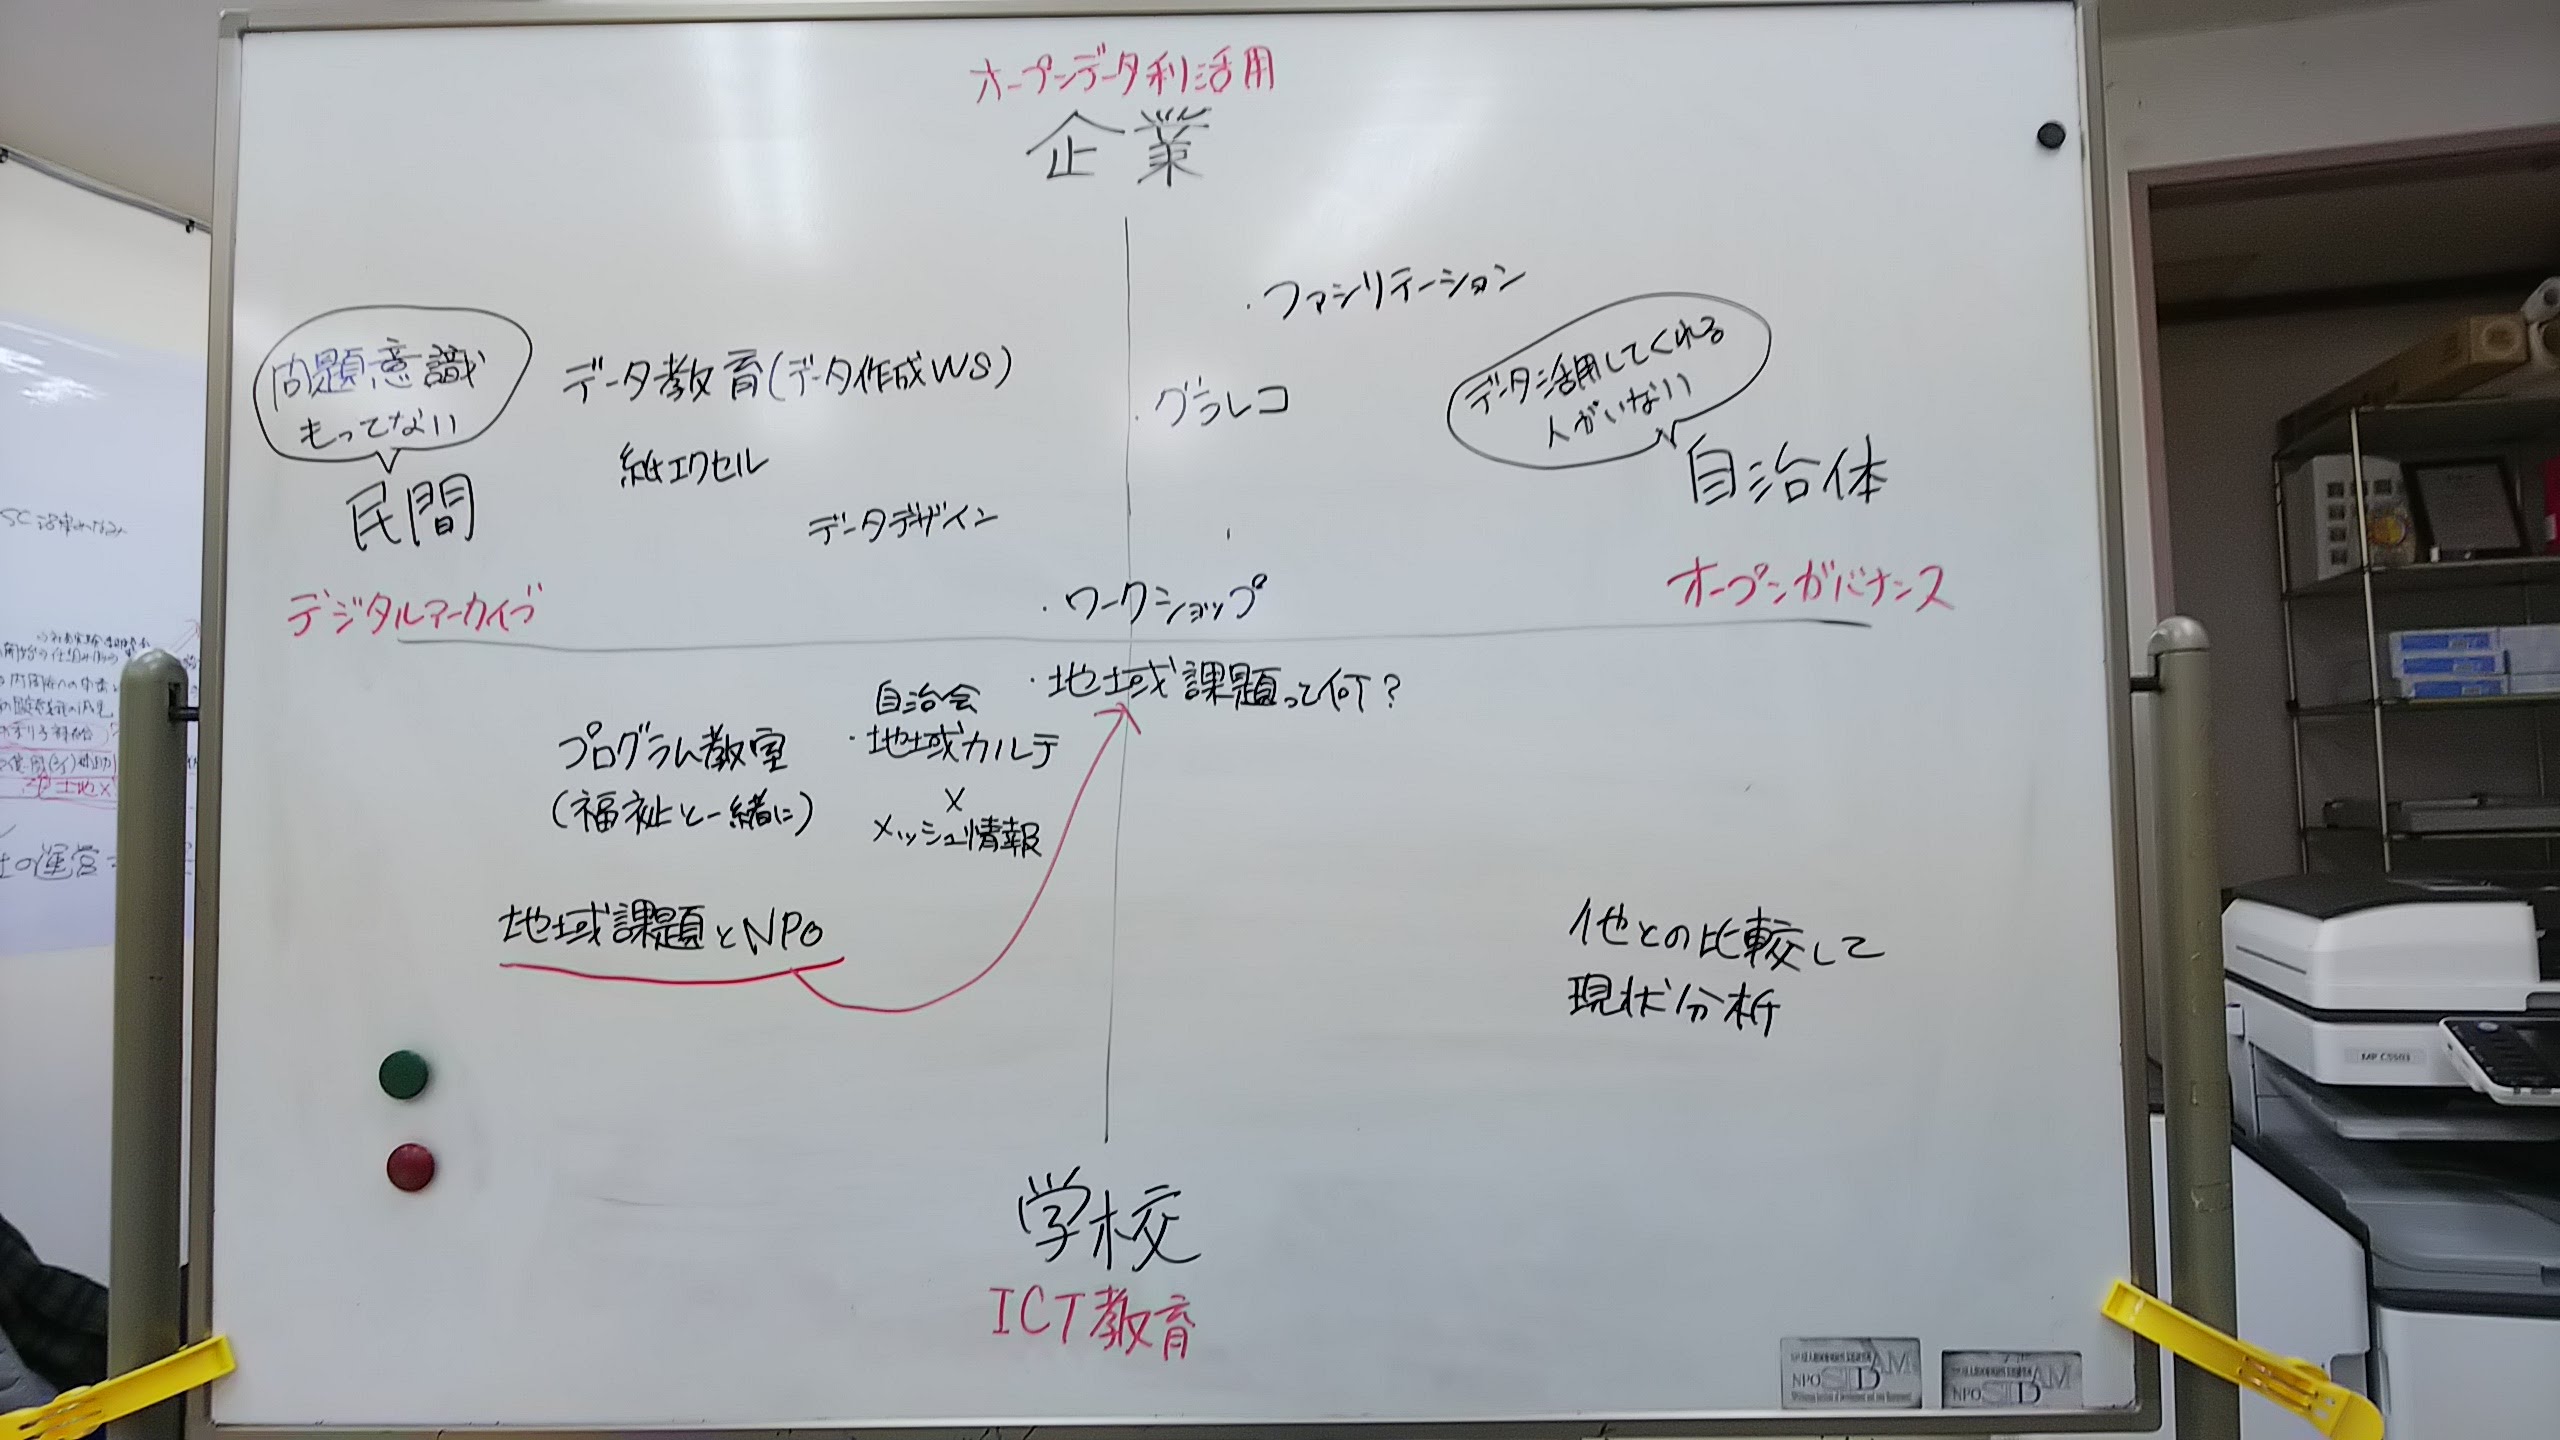 オープンデータ利活用
企業
・ファシリテーション
問題意識
もってない
データ教育(データ作成WS)
・グラレコ
データ活用してくれる
人がいない
紙エクセル
民間
自治体
データデザイン
デジタルアーカイブ
・ワークショップ
オープンガバナンス
・地域課題って何?
自治会
・地域カルテ
×
メッシュ情報
プログラム教室
(福祉と一緒に)
地域課題とNPO
他との比較して
現状分析
学校
ICT教育
NPO
NPO
MP C5503
の運営